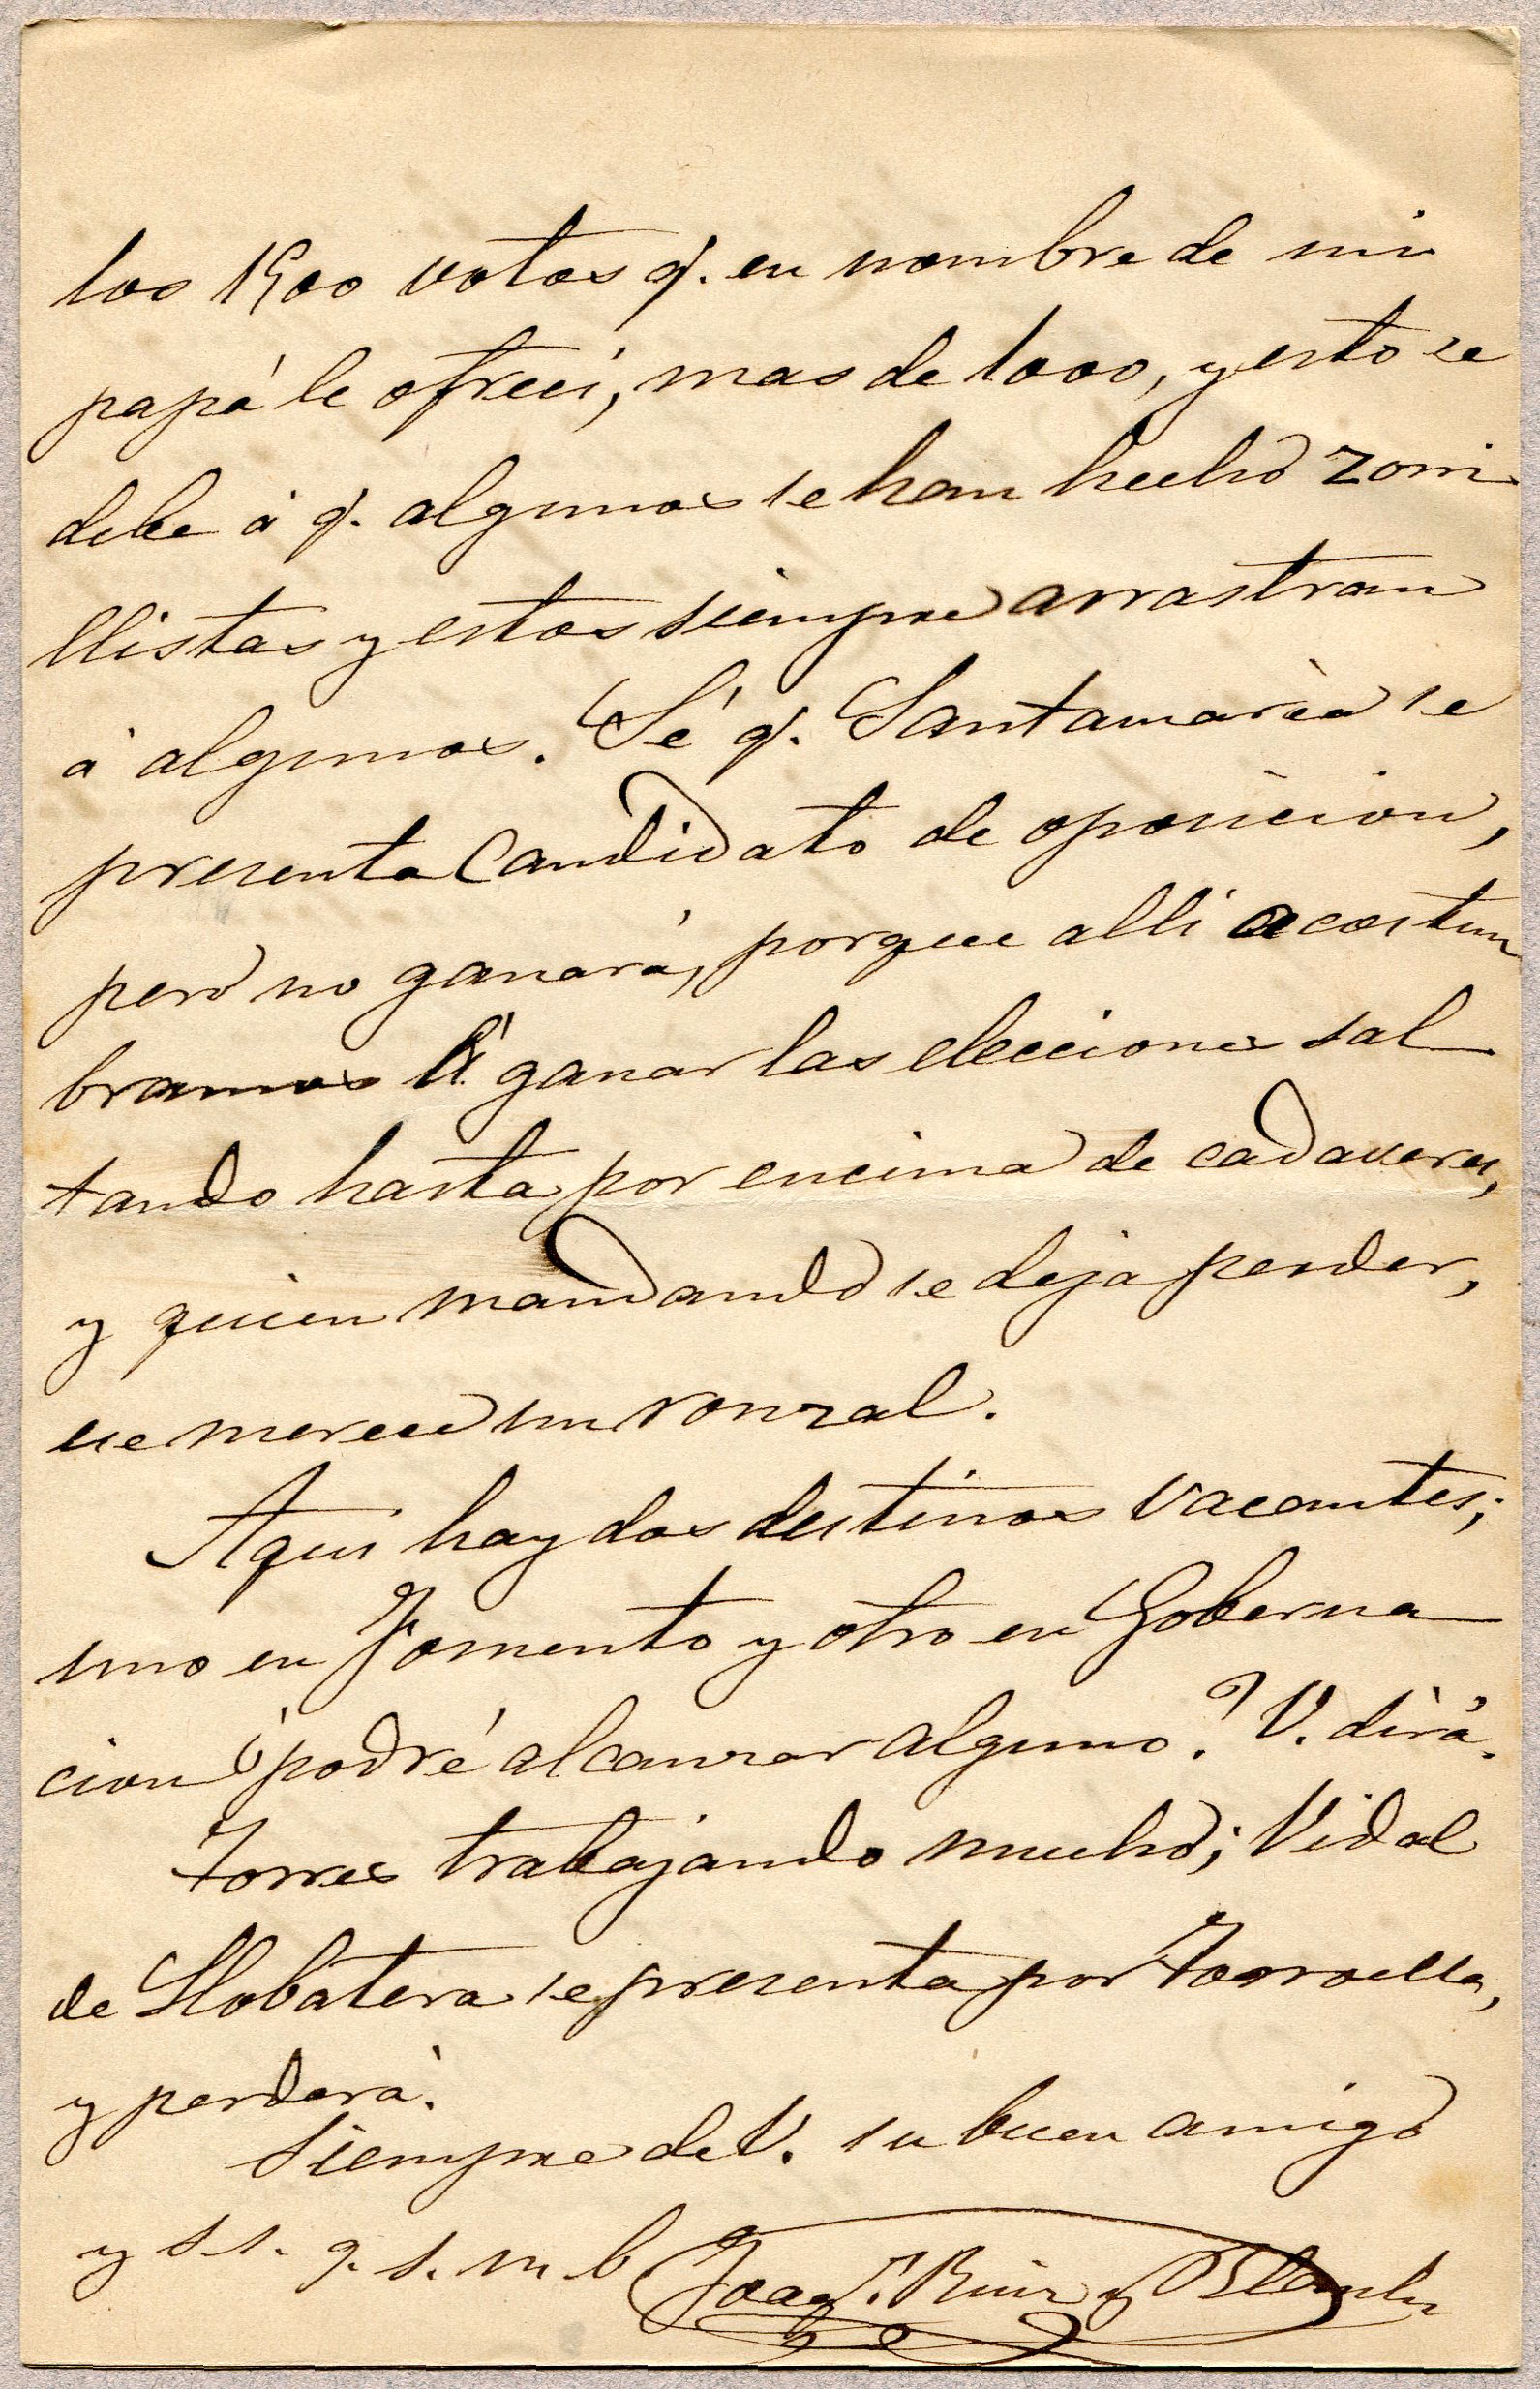 los 1500 votos q. en nombre de mi
papá le ofrecí, mas de 1000, y esto se
debe á q. algunos se han hecho zorri
llistas y estos siempre arrastran
á algunos. Sé q. Santamaría se
presenta Candidato de oposicion,
pero no ganará, porque alli acostum
bramos á ganar las elecciones sal
tando hasta por encima de cadaveres,
y quien mandando se deja perder,
se merece un ronzal.
Aqui hay dos destinos vacantes;
uno en Fomento y otro en Goberna
cion ¿podré alcanzar alguno? V. dirá.
Torres trabajando mucho; Vidal
de Llobatera se presenta por Torroella,
y perderá.
Siempre de V. su buen amigo
y s s. q. s. m b Joaqn. Ruiz y Blanch